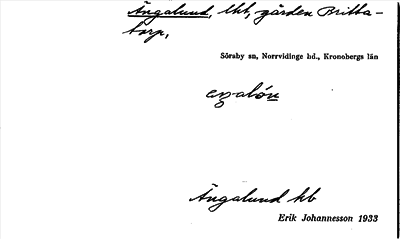 Ängalund, lht, gården Britta-
torp,
Söraby sn, Norrvidinge hd., Kronobergs län
Ängalund hb
Erik Johannesson 1933